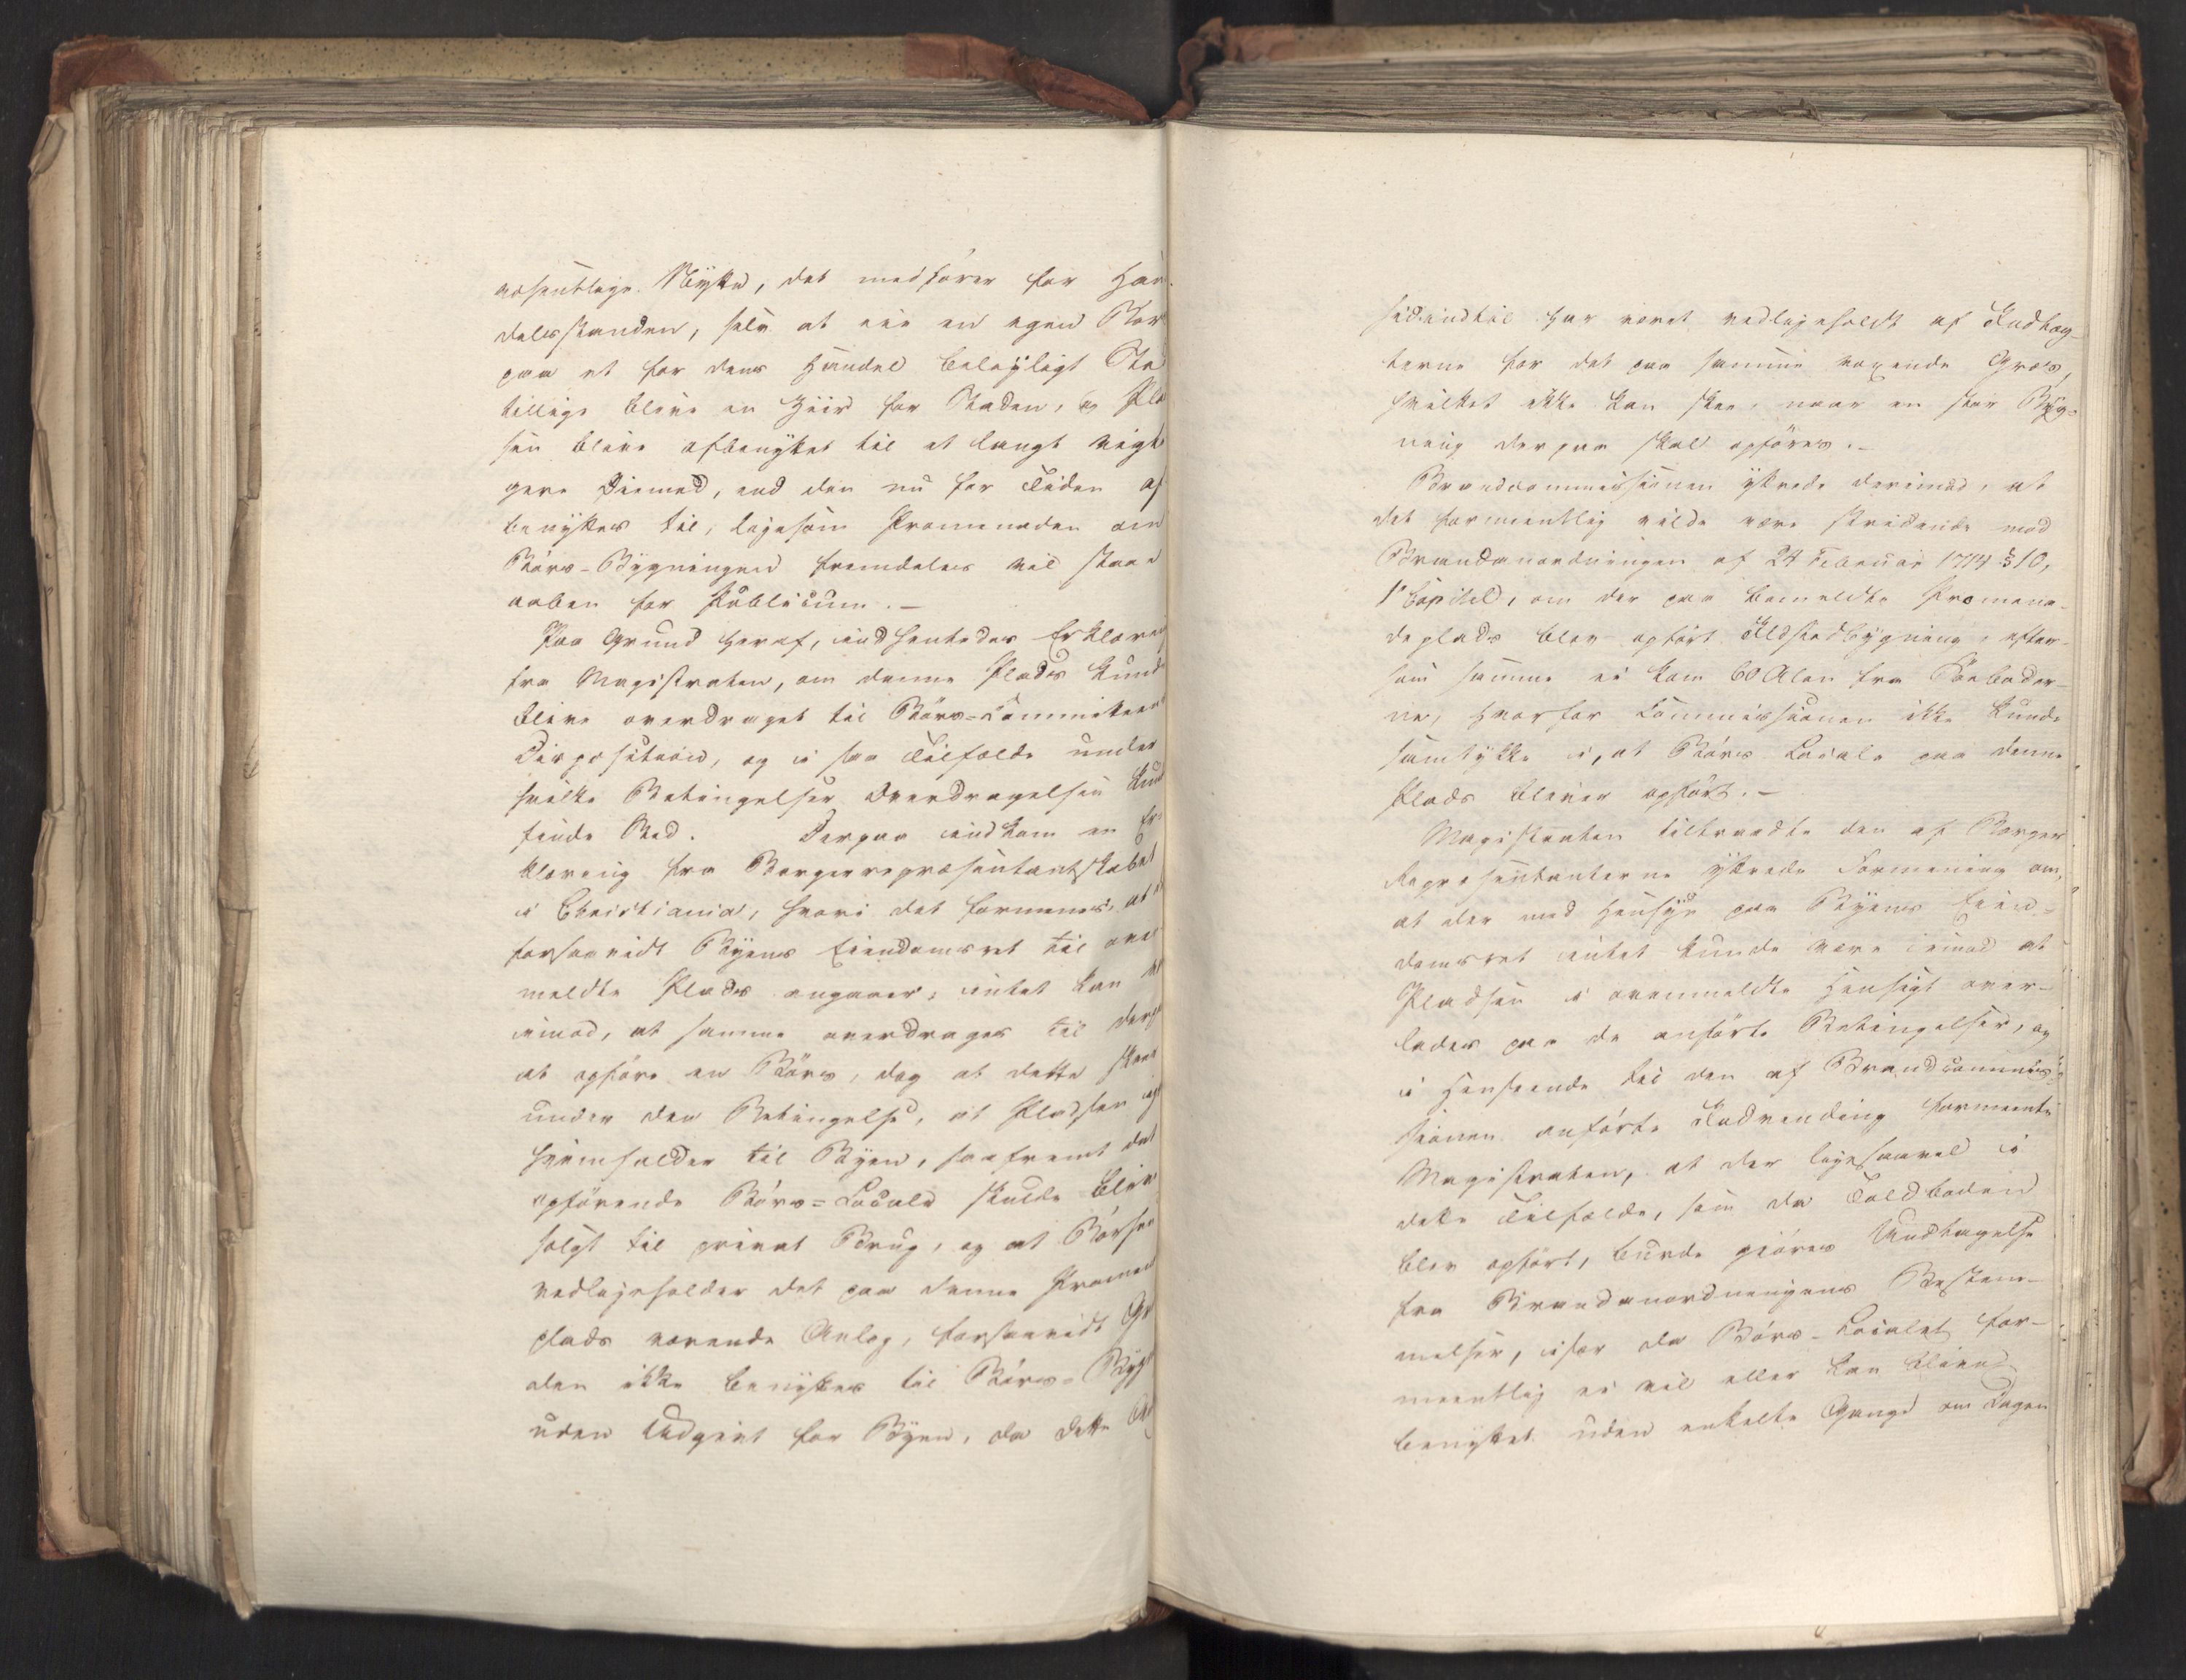 væsentlige Nytte, det medfører for Han-
delsstanden, selv at eie en egen Børs
paa et for dens Handel beleiligt Sted
tillige blive en Ziir for Staden, og Plad
sen blive afbenyttet til et langt vigti
gere Øiemed, end den nu for Tiden af
benyttes til, ligesom Promenaden om
Børs-Bygningen fremdeles vil staae
aaben for Publicum.-
Paa Grund heraf, indhentedes Erklæring
fra Magistraten, om denne Plads kunde
blive overdraget til Børs-Committeens
Disposition, og i saa Tilfælde under
hvilke Betingelser Overdragelsen kunde
finde Sted. Derpaa indkom en Er-
klæring fra Borgerrepræsentantskabet
i Christiania, hvori det formenes, at
forsaavidt Byens Eiendomsret til oven
meldte Plads angaaer, intet kan
imod, at samme overdrages til derpaa
at opføre en Børs, dog at dette skeer
under den Betingelse, at Pladsen igj
hjemfalder til Byen, saafremt det
opførende Børs-Locale skulde blive
solgt til privat Brug, og at Børsen
vedligeholder det paa denne Promena
plads værende Anlæg, forsaavidt Gr
den ikke benyttes til Børs-Byg
uden Udgivt for Byen, da dette
hidindtil har været vedligeholdt af Indtæg-
terne for det paa samme voxende Græs,
hvilket ikke kan skee, naar en stor Byg-
ning derpaa skal opføres.-
Brandcommissionen yttrede derimod, at
det formentlig vilde være stridende mod
Brandanordningen af 24 Februar 1714 § 10,
1 Capitel, om der paa bemeldte Promena-
deplads blev opført Ildstedbygning, efter-
som samme ei kom 60 Alen fra Søeboder-
ne, hvorfor Commissionen ikke kunde
samtykke i, at Børs Locale paa denne
Plads bliver opført.-
Magistraten tiltraadte den af Borger
Repræsentanterne yttrede Formening om,
at der med Hensyn paa Byens Eien-
domsret intet kunde være imod at
Pladsen i ovenmeldte Hensigt over-
lades paa de anførte Betingelser, og
i Henseende til den af Brandcommis-
sionen anførte Indvending formeente
Magistraten, at der ligesaavel i
dette Tilfælde, som da Toldboden
blev opført, burde gjøres Undtagelse
fra Brandanordningens Bestem-
melser, især da Børs-Localet for-
meentlig ei vil eller kan blive
benyttet uden enkelte Gange om Dagen